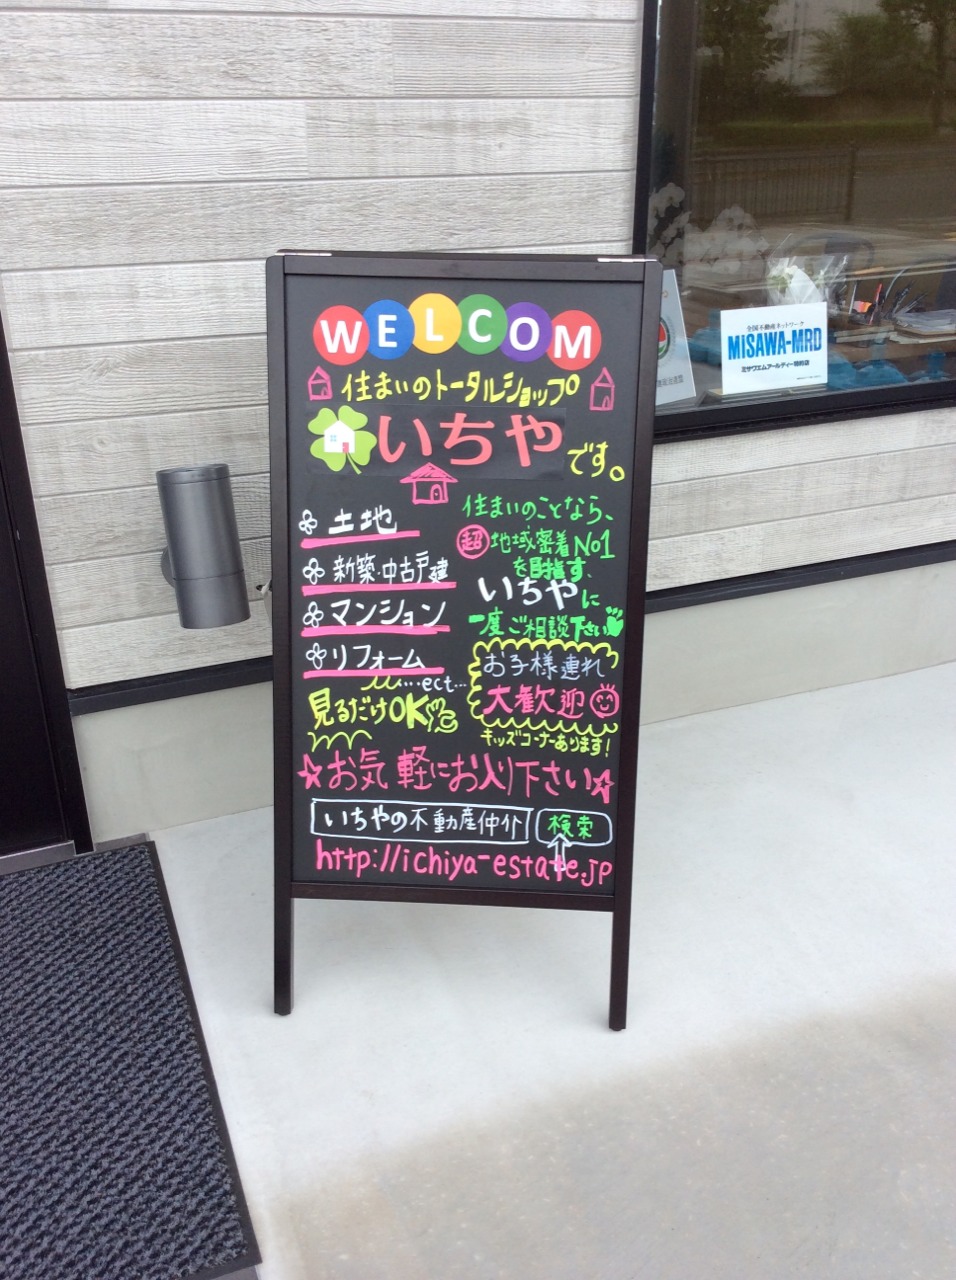 WELCOM
住まいのトータルショップ
いちや
です。
土地
新築・中古戸建
マンション
リフォーム
...ect...
見るだけOK
住まいのことなら、
超 地域密着No1
を目指す、
いちやに
一度ご相談下さい
お子様連れ
大歓迎
キッズコーナーあります!
☆お気軽にお入り下さい☆
いちやの不動産仲介 検索
http://ichiya-estate.jp
全国不動産ネットワーク
MISAWA-MRD
ミサワエムアールディー特約店